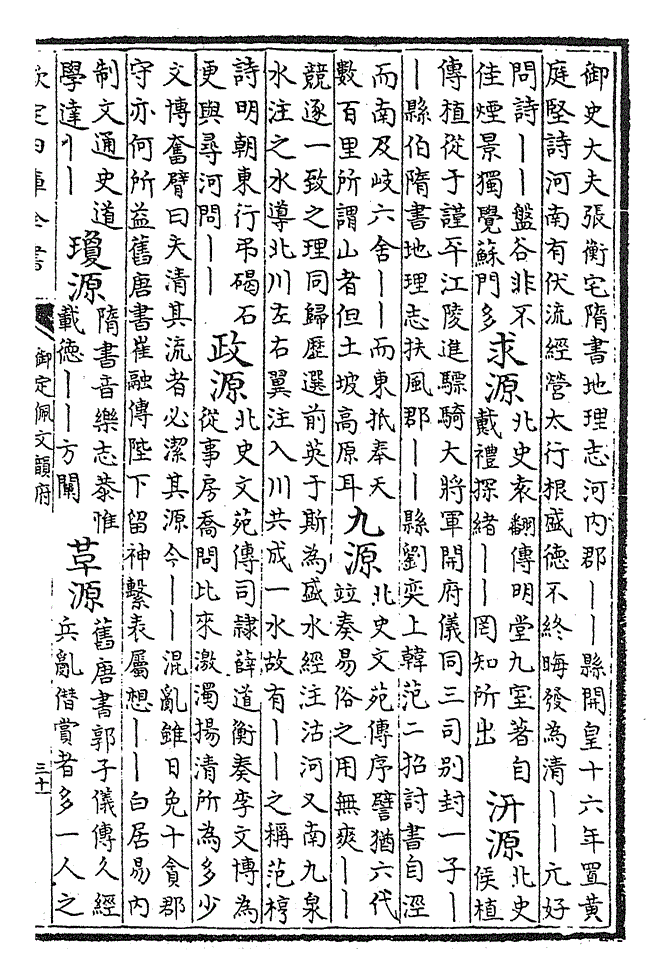 御史大夫張衡宅隋書地理志河內郡丨丨縣開皇十六年置黃
庭堅詩河南有伏流經營太行根盛德不終晦發為清丨丨元好
問詩丨丨盤谷非不
佳煙景獨覺蘇門多
求源
北史袁翻傳明堂九室著自
戴禮探緒丨丨罔知所出
汧源
北史
侯植
傳植從于謹平江陵進驃騎大將軍開府儀同三司別封一子丨
丨縣伯隋書地理志扶風郡丨丨縣劉奕上韓范二招討書自涇
而南及岐六舍丨丨而東抵奉天
數百里所謂山者但土坡高原耳
九源
北史文苑傳序譬猶六代
竝奏易俗之用無爽丨丨
競逐一致之理同歸歷選前英于斯為盛水經注沽河又南九泉
水注之水導北川左右翼注入川共成一水故有丨丨之稱范梈
詩明朝東行弔碣石
更與尋河問丨丨
政源
北史文苑傳司隸薛道衡奏李文博為
從事房喬問比來激濁揚清所為多少
文博奮臂曰夫清其流者必潔其源今丨丨混亂雖日免十貪郡
守亦何所益舊唐書崔融傳陛下留神繫表屬想丨丨白居易內
制文通史道
學達丨丨
瓊源
隋書音樂志恭惟
載德丨丨方闡
草源
舊唐書郭子儀傳久經
兵亂僭賞者多一人之
欽定四庫全書
御定佩文韻府
三十